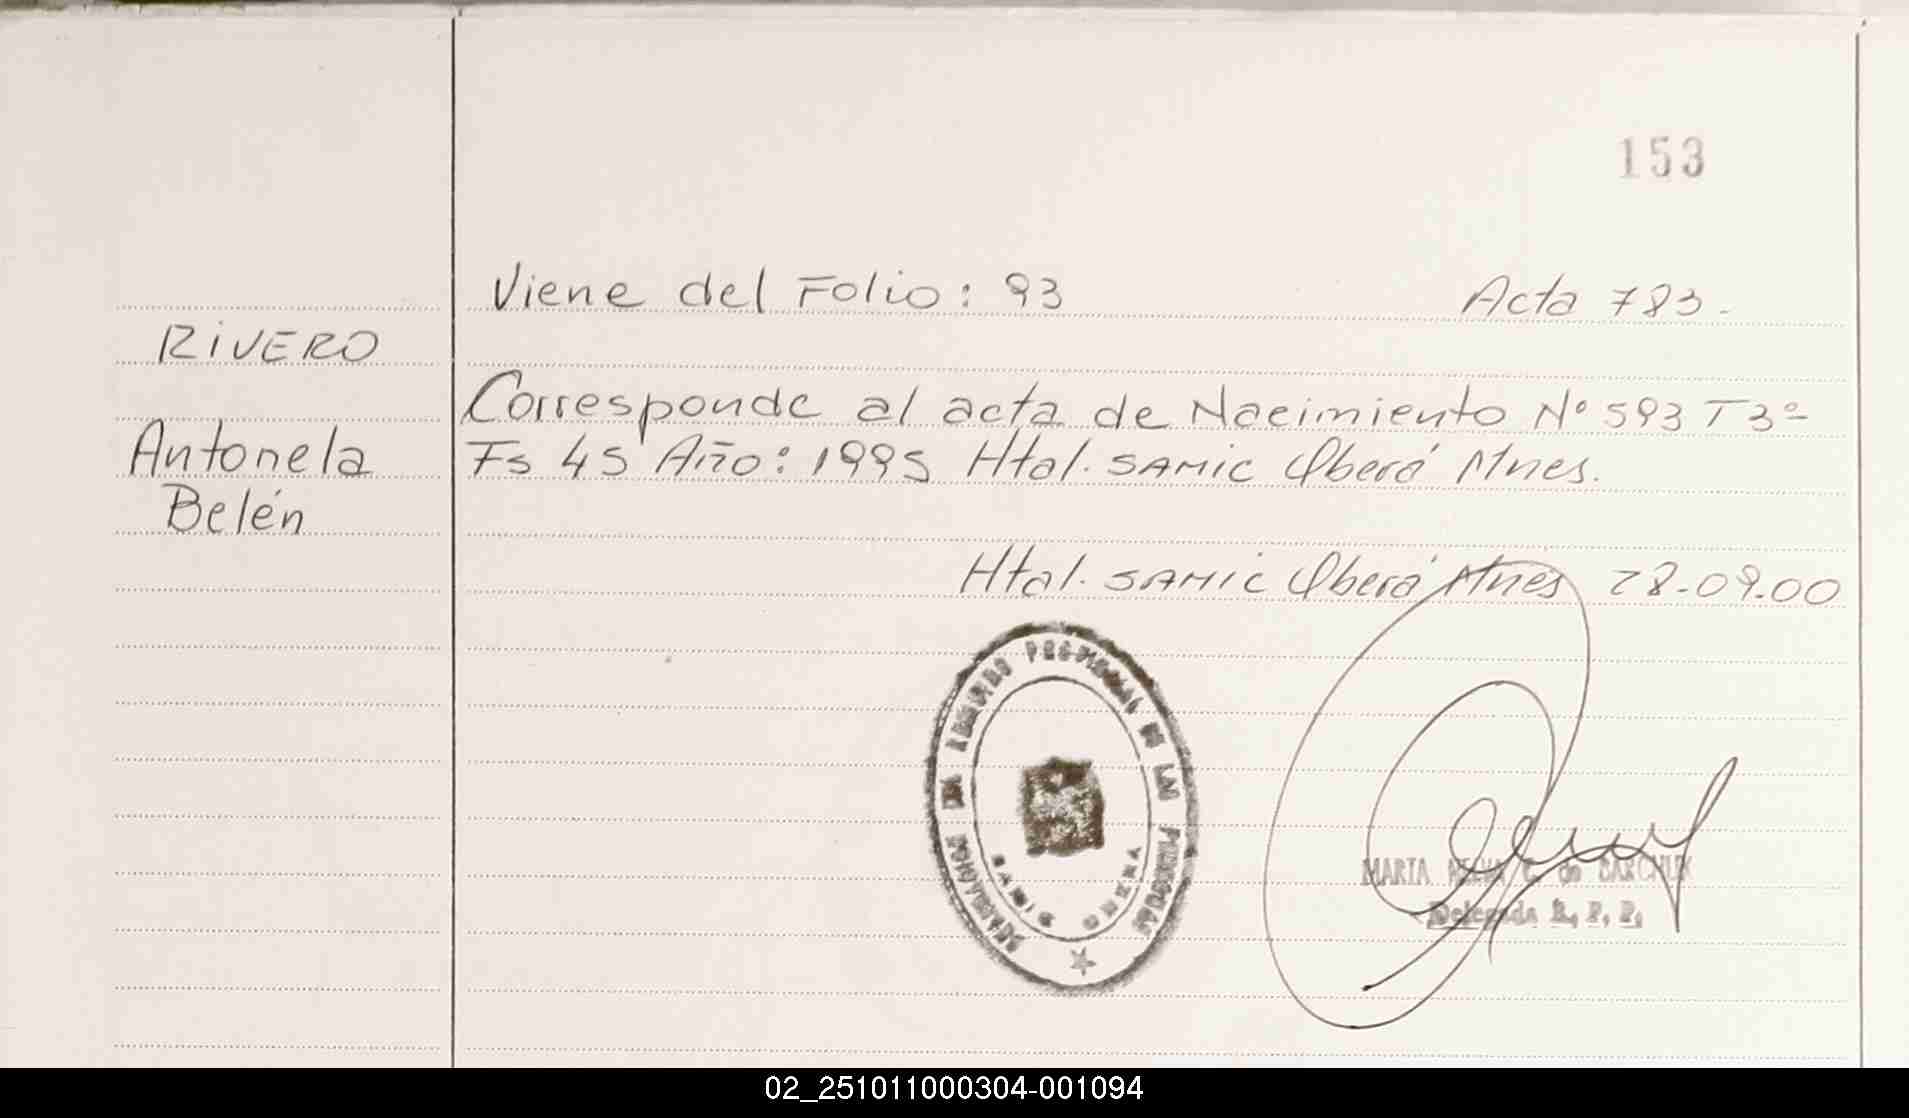 153
Viene del Folio: 93 Acta 783.
RIVERO
Corresponde al acta de Nacimiento Nº 593 T 3º
Antonela
Fs 45 Año: 1995 Htal. SAMIC Oberá Mnes.
Belén
Htal. SAMIC Oberá Mnes 28.09.00
DELEGACION DEL REGISTRO PROVINCIAL DE LAS PERSONAS
SAMIC OBERA
MARIA C. de SARCHUK
Delegada R. P. P.
02_251011000304-001094